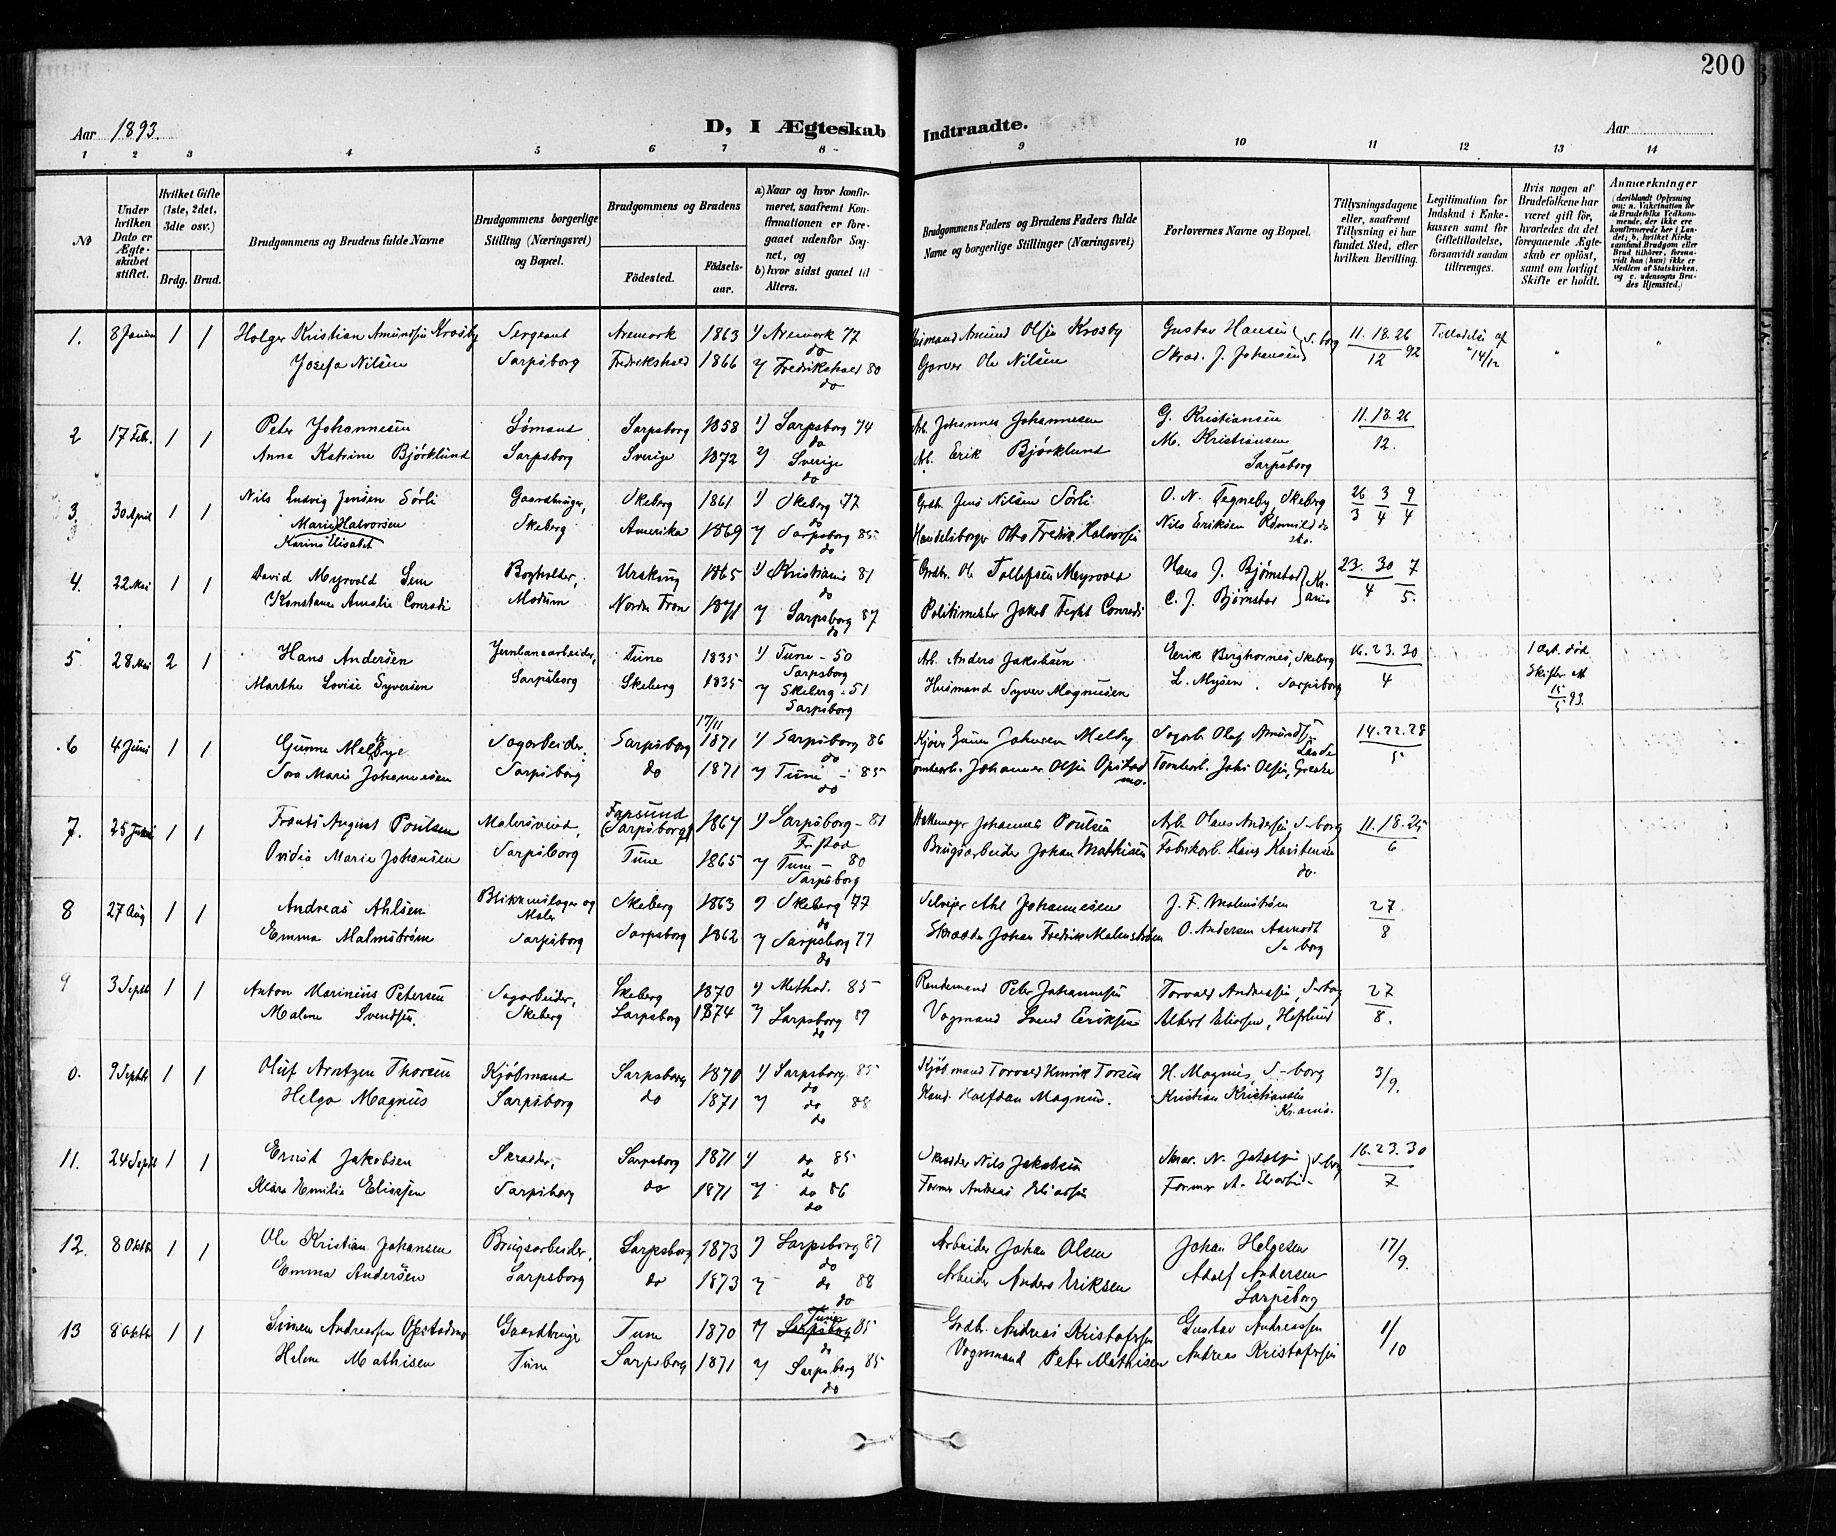 200
Aar 1893.
D, I Ægteskab Indtraadte.
Aar
1 2 3 4 5 6 7 8 9 10 11 12 13 14
№
Under hvilken Dato er Ægteskabet stiftet.
Hvilket Gifte (1ste, 2det, 3die osv.)
Brdg. Brud.
Brudgommens og Brudens fulde Navne
Brudgommens borgerlige Stilling (Næringsvei) og Bopæl.
Brudgommens og Brudens
Fødested.
Fødselsaar.
a) Naar og hvor konfirmeret, saafremt Konfirmationen er foregaaet udenfor Sognet, og
b) hvor sidst gaaet til Alters.
Brudgommens Faders og Brudens Faders fulde Navne og borgerlige Stillinger (Næringsvei)
Forlovernes Navne og Bopæl.
Tillysningsdagene eller, saafremt Tillysning ei har fundet Sted, efter hvilken Bevilling.
Legitimation for Indskud i Enkekassen samt for Giftetilladelse, forsaavidt saadan tiltrænges.
Hvis nogen af Brudefolkene har været gift før, hvorledes da det foregaaende Ægteskab er opløst, samt om lovligt Skifte er holdt.
Anmærkninger
1. 8 Januar 1 1 Holger Kristian Amundsen Krosby Sergeant Aremark 1863 1) Aremark 77 do Husmand Amund Olsen Krosby Gustav Hansen S.borg 11. 18. 26 / 12 92 Tilladelse af 14/12
Josefa Nilsen Sarpsborg Fredrikshald 1866 2) Fredrikshald 80 do Garver Ole Nilsen Skrad. J. Johansen
2 17 Feb. 1 1 Peter Johannesen Sømand Sarpsborg 1858 1) Sarpsborg 74 do Arb. Johannes Johannesen G. Kristiansen 11. 18. 26 / 12.
Anna Katrine Bjørklund Sarpsborg Sverige 1872 2) Sverige do Arb. Erik Bjørklund M. Kristiansen Sarpsborg
3 30 April 1 1 Nils Ludvig Jensen Sørli Gaardbruger, Skeberg 1861 1) Skeberg 77 do Grdb. Jens Nilsen Sørli O. N. Tegneby, Skeberg 26/3 3/4 9/4
Marie Halvorsen Karine Elisabet Skeberg Amerika 1869 2) Sarpsborg 85 do Handelsborger Otto Fredrik Halvorsen Nils Eriksen do
4. 22 Mai 1 1 David Myrvold Sem Bogholder, Urskoug 1865 1) Kristiania 81 do Grdbr. Ole Tollefsen Myrvold Hans J. Bjørnstad Kr.ania 23. 30 / 4 7 / 5.
Konstance Amalie Conradi Modum Nordre Fron 1871 2) Sarpsborg 87 do Politimester Jakob Conradi C. J. Bjørnstad
5 28 Mai 2 1 Hans Andersen Jernbanearbeider, Tune 1835 1) Tune - 50 Sarpsborg Arb. Anders Jakobsen Erik Berghornes, Skeberg 16. 23. 30 / 4 1 Ægt. død Skifte att 15/5 93.
Marthe Lovise Syversen Sarpsborg Skeberg 1835 2) Skeberg - 51 Sarpsborg Husmand Syver Magnusen L. Mysen, Sarpsborg
6 4 Juni 1 1 Gunne Melbye Sagarbeider, Sarpsborg 17/11 1871 1) Sarpsborg 86 do Johansen Melby Sagarb. Olaf Amunds. Lande 14. 22. 28 / 5
Tora Marie Johannesen Sarpsborg do 1871 2) Tune - 85 do Tomtearb. Johannes Olsen Opstadmo. Tomtearb. Johs Olsen, Greaker
7. 25 Juni 1 1 Frants August Poulsen Malersvend, (Sarpsborg) 1864 1) Sarpsborg - 81 Fr.stad Johannes Poulsen Arb. Olaus Andersen, S-borg 11. 18. 25 / 6
Ovidia Marie Johansen Sarpsborg Tune 1865 2) Tune - 80 Sarpsborg Brugsarbeider Johan Mathisen Fabrikarb. Hans Karstensen do.
8 27 Aug 1 1 Andreas Ahlsen Blikkenslager og Maler Skeberg 1863 1) Skeberg 77 do Selveier Ahl Johannesen J. F. Malmstrøm 27 / 8
Emma Malmstrøm Sarpsborg Sarpsborg 1862 2) Sarpsborg 77 do Skrædder Johan Fredrik Malmstrøm O. Andersen Aamodt S-borg
9 3 Septb 1 1 Anton Marinius Petersen Sagarbeider, Skeberg 1870 1) Method. 85 Rendemand Peter Johannesen Torvald Andreassen, S-borg 27 / 8.
Malene Svendsen. Skeberg Sarpsborg 1874 2) Sarpsborg 87 do Vogmand Svend Eriksen Albert Eliasen, Hafslund
0. 9 Septbr 1 1 Oluf Arntzen Thorsen Kjøbmand Sarpsborg 1870 1) Sarpsborg. 85 do Kjøbmand Torvald Henrik Torsen H. Magnus, S-borg 3/9.
Helga Magnus Sarpsborg do 1871 2) do 88 do Halfdan Magnus. Kristian Kristiansen Kr.ania.
11. 24 Septb 1 1 Ernst Jakobsen Skrædder, Sarpsborg 1871 1) do 85 do Skrædder Nils Jakobsen Skræ. N. Jakobsen S-borg 16. 23. 30 / 7
Klara Emilie Eliassen Sarpsborg do 1871 2) do 86 do Former Andreas Eliassen Former A. Eliassen
12. 8 Oktb 1 1 Ole Kristian Johansen Brugsarbeider, Sarpsborg 1873 1) Sarpsborg 87 do Arbeider Johan Olsen Johan Helgesen 17/9.
Emma Andersen Sarpsborg do 1873 2) do 88 do Arbeider Anders Eriksen Adolf Andersen Sarpsborg
13 8 Oktb 1 1 Simen Andreassen Opstadmo Gaardbruger Tune 1870 1) Sarpsborg Tune 85 do Grdbr. Andreas Kristofersen Gustav Andreassen 1/10
Helene Mathisen Tune Sarpsborg 1871 2) Sarpsborg 85 do Vogmand Peter Mathisen Andreas Kristofersen